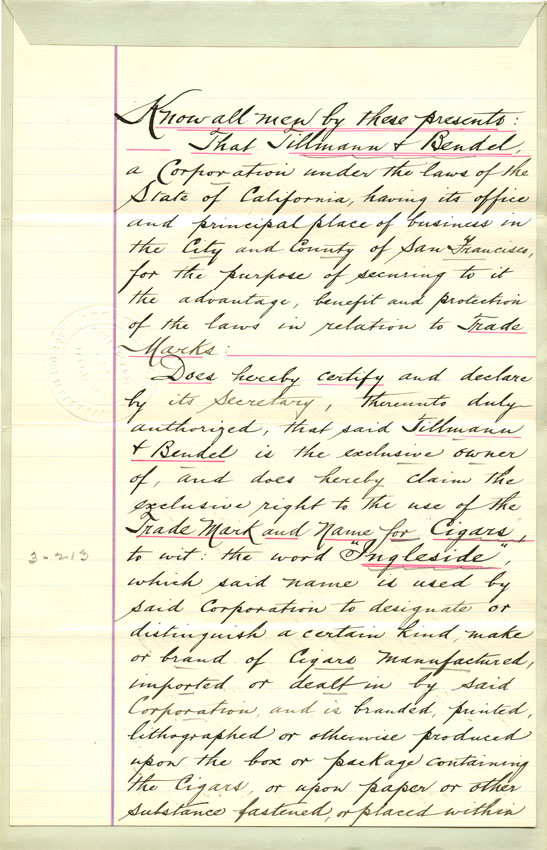 Know all men by these presents:
That Tillmann & Bendel,
a Corporation under the laws of the
State of California, having its office
and principal place of business in
the City and County of San Francisco,
for the purpose of securing to it
the advantage, benefit and protection
of the laws in relation to Trade
Marks:
Does hereby certify and declare
by its Secretary, thereunto duly
authorized, that said Tillmann
& Bendel is the exclusive owner
of, and does hereby claim the
exclusive right to the use of the
Trade Mark and Name for Cigars,
3-213
to wit: the word "Ingleside",
which said name is used by
said Corporation to designate or
distinguish a certain kind, make
or brand of Cigars manufactured,
imported or dealt in by said
Corporation, and is branded, printed,
lithographed or otherwise produced
upon the box or package containing
the Cigars, or upon paper or other
substance fastened, or placed within